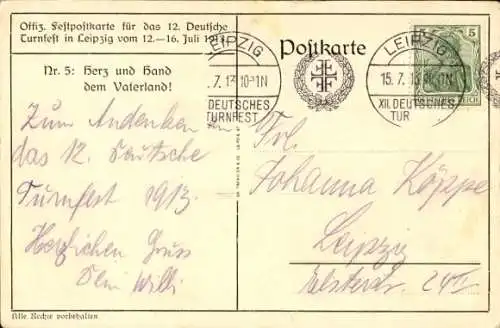 Offiz. Festpostkarte für das 12. Deutsche
Turnfest in Leipzig vom 12.—16. Juli 1913.
Nr. 5: Herz und Hand
dem Vaterland!
Zum Andenken an
das 12. Deutsche
Turnfest 1913.
Herzlichen Gruss
Dein Willi
Alle Rechte vorbehalten
Postkarte
LEIPZIG
.7.13 10-11N
DEUTSCHES
TURNFEST
LEIPZIG
15.7.13 N
XII. DEUTSCHES
TUR
5
REICH
Frl.
Johanna Köppe
Leipzig
Elsterstr. 24 II